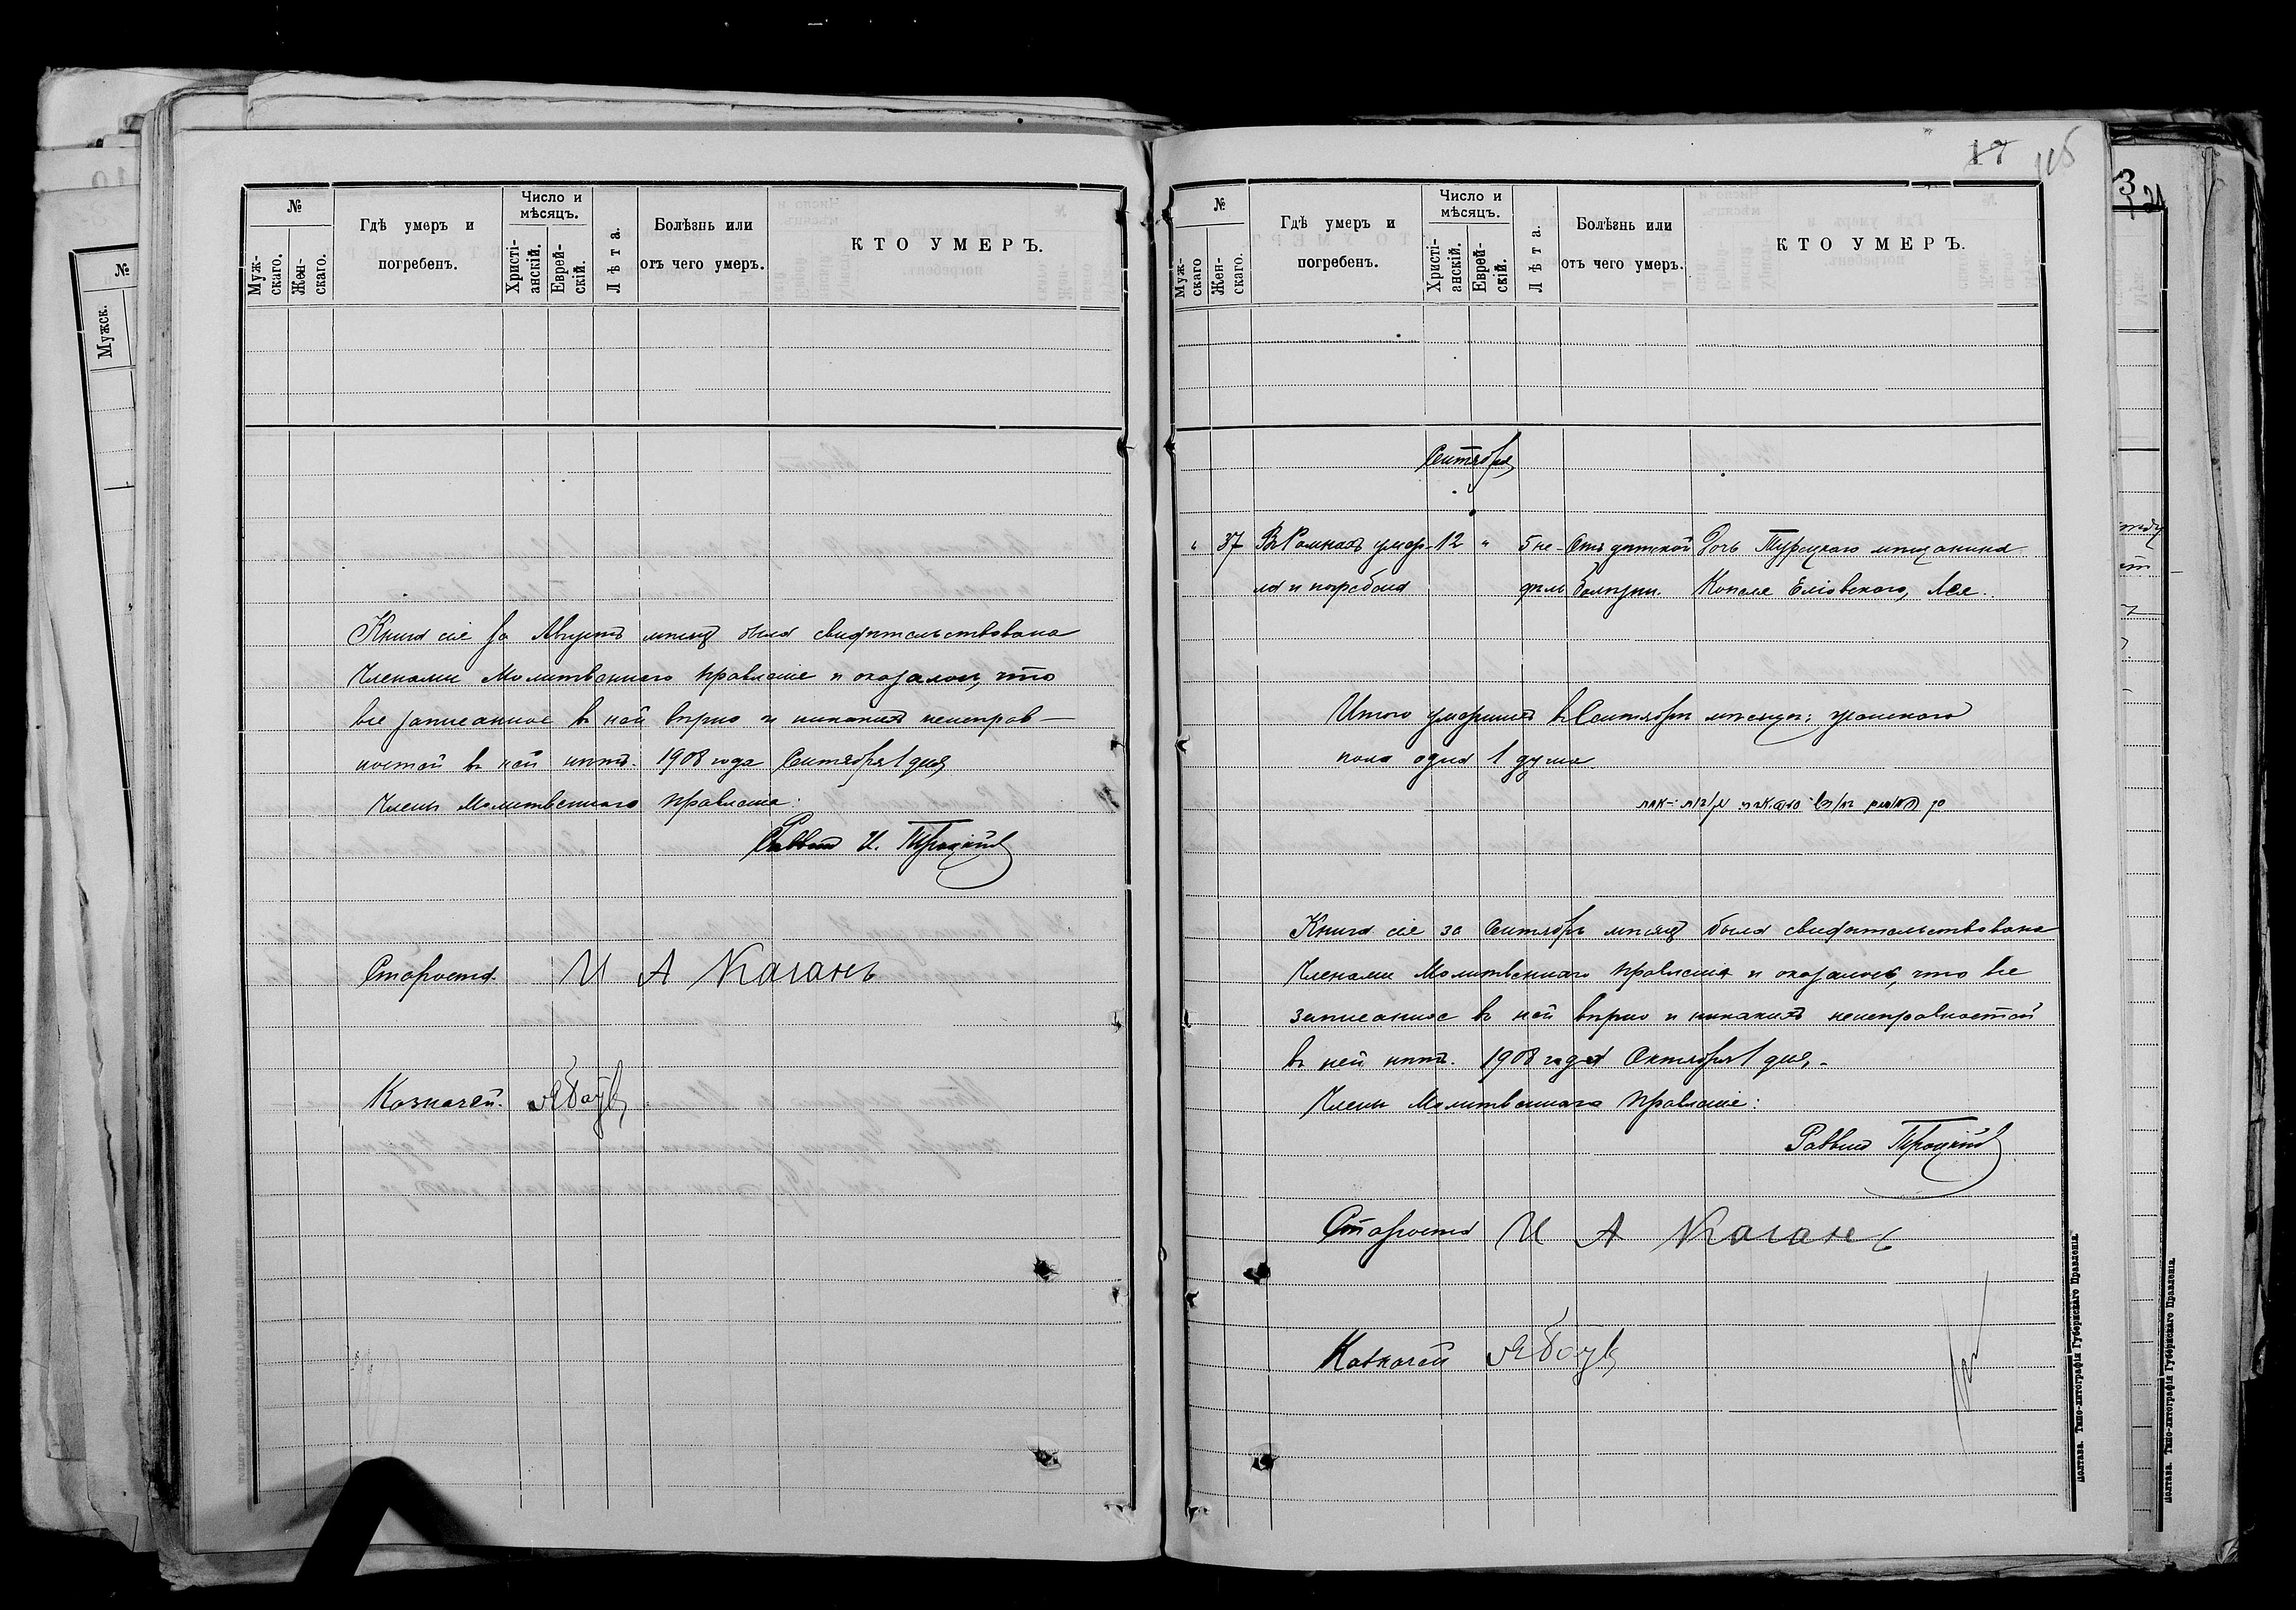 №
Муж-
скаго.
Жен-
скаго.
Гдѣ умеръ и
погребенъ.
Число и
мѣсяцъ.
Христі-
анскій.
Еврей-
скій.
Лѣта.
Болѣзнь или
отъ чего умеръ.
КТО УМЕРЪ.
Книга сія за Августъ мѣсяцъ была свидѣтельствована
Членами Молитвеннаго Правленія и оказалось, что
все записанное въ ней вѣрно и никакихъ неисправ-
ностей въ ней нѣтъ. 1908 года Сентября 1 дня
Члены Молитвеннаго Правленія:
Раввинъ И.
Староста И А Каганъ
Казначей.
17
№
Муж-
скаго
Жен-
скаго.
Гдѣ умеръ и
погребенъ.
Число и
мѣсяцъ.
Христі-
анскій.
Еврей-
скій.
Лѣта.
Болѣзнь или
отъ чего умеръ.
КТО УМЕРЪ.
Сентябрь
" 37 Въ Ромнахъ умер- 12 " 5 не- Отъ дѣтской Дочь Турецкаго мѣщанина
ла и погребена дѣль болѣзни. Копеля Еловскаго, Лея.
Итого умершихъ въ Сентябрѣ мѣсяцѣ: женскаго
пола одна 1 душа
Книга сія за Сентябрь мѣсяцъ была свидѣтельствована
Членами Молитвеннаго Правленія и оказалось, что все
записанное въ ней вѣрно и никакихъ неисправностей
въ ней нѣтъ. 1908 года Октября 1 дня.
Члены Молитвеннаго Правленія:
Раввинъ
Староста И А Каганъ
Казначей
Полтава. Типо-литографія Губернскаго Правленія.
3
№
Мужск.
Полтава. Типо-литографія Губернскаго Правленія.